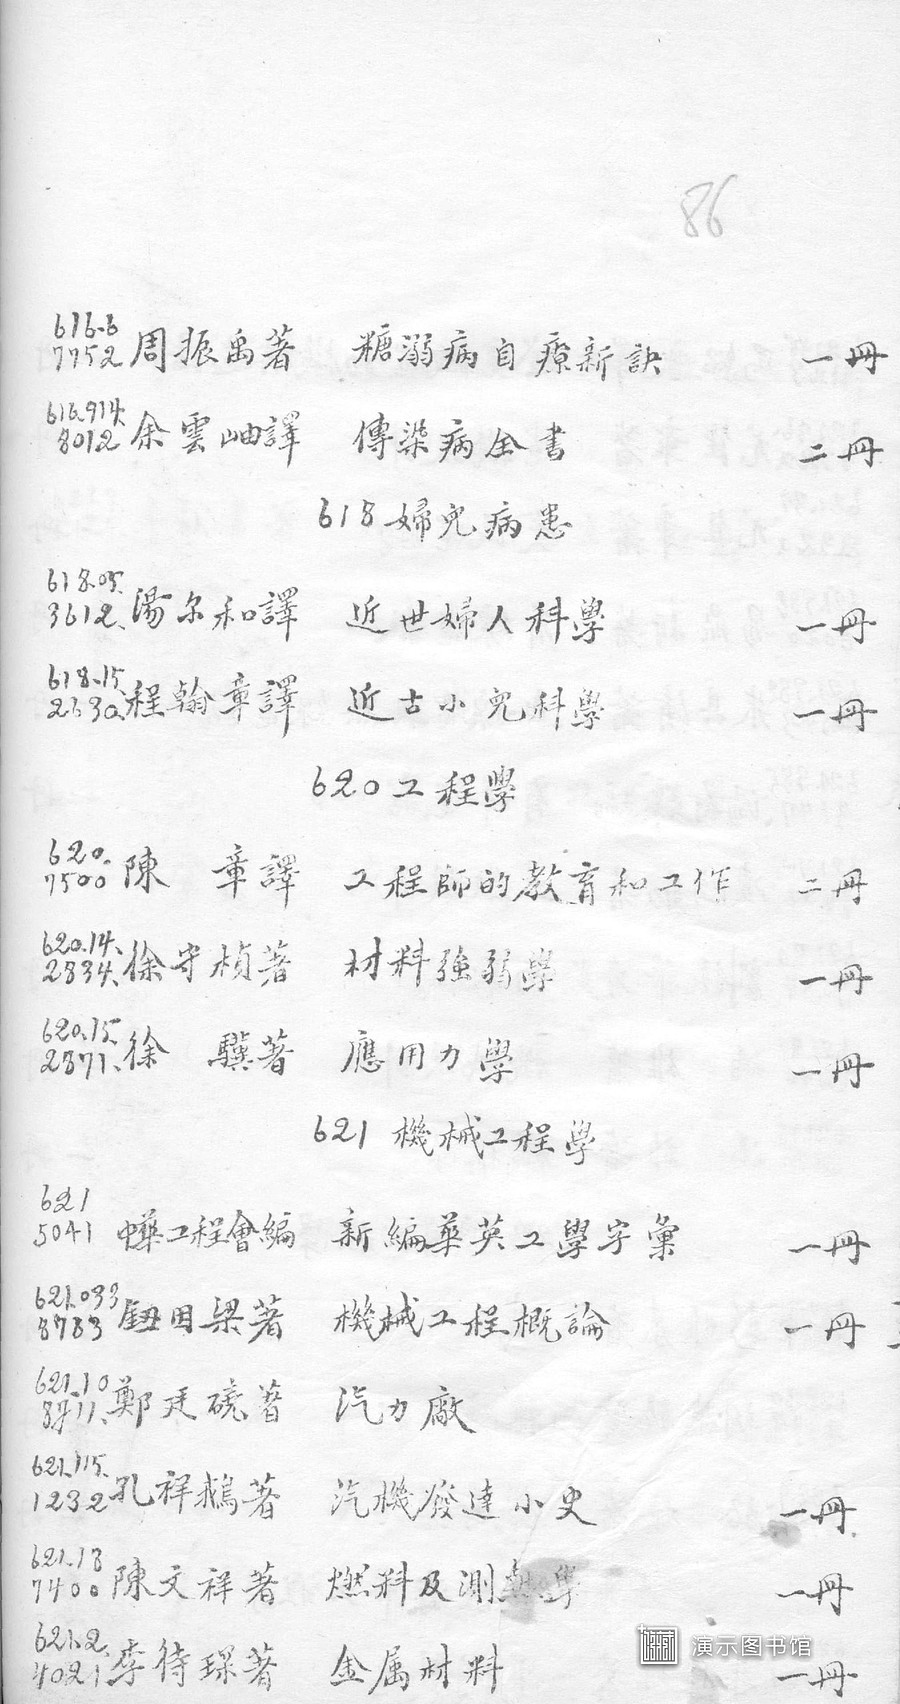 86
616.6
7752 周振禹著 糖溺病自療新訣 一冊
616.914
8012 余雲岫譯 傳染病全書 二冊
618 婦兒病患
618.05
3612 湯尔和譯 近世婦人科學 一冊
618.15
2630 程翰章譯 近古小兒科學 一冊
620 工程學
620
7500 陳 章譯 工程師的教育和工作 二冊
620.14
2834 徐守楨著 材料強弱學 一冊
620.15
2871 徐 驥著 應用力學 一冊
621 機械工程學
621
5041 中華工程會編 新編華英工學字彙 一冊
621.033
8783 鈕因梁著 機械工程概論 一冊
621.10
鄭廷硗著 汽力廠
621.115
1232 孔祥鵝著 汽機發達小史 一冊
621.18
7400 陳文祥著 燃料及測熱學 一冊
621.2
4021 李待琛著 金属材料 一冊
演示图书馆